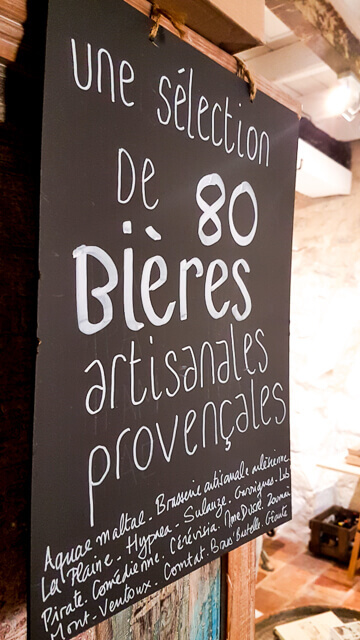 une sélection
DE 80
Bières
artisanales
provençales
Aquae maltae. Brasserie artisanale arlésienne
La Plaine. Hyprea. Sulauze. Garrigues. Lob
Pirate. Comédienne. Cérévisia. Mme Ducré.
Mont-Ventoux. Comtat. Bras'